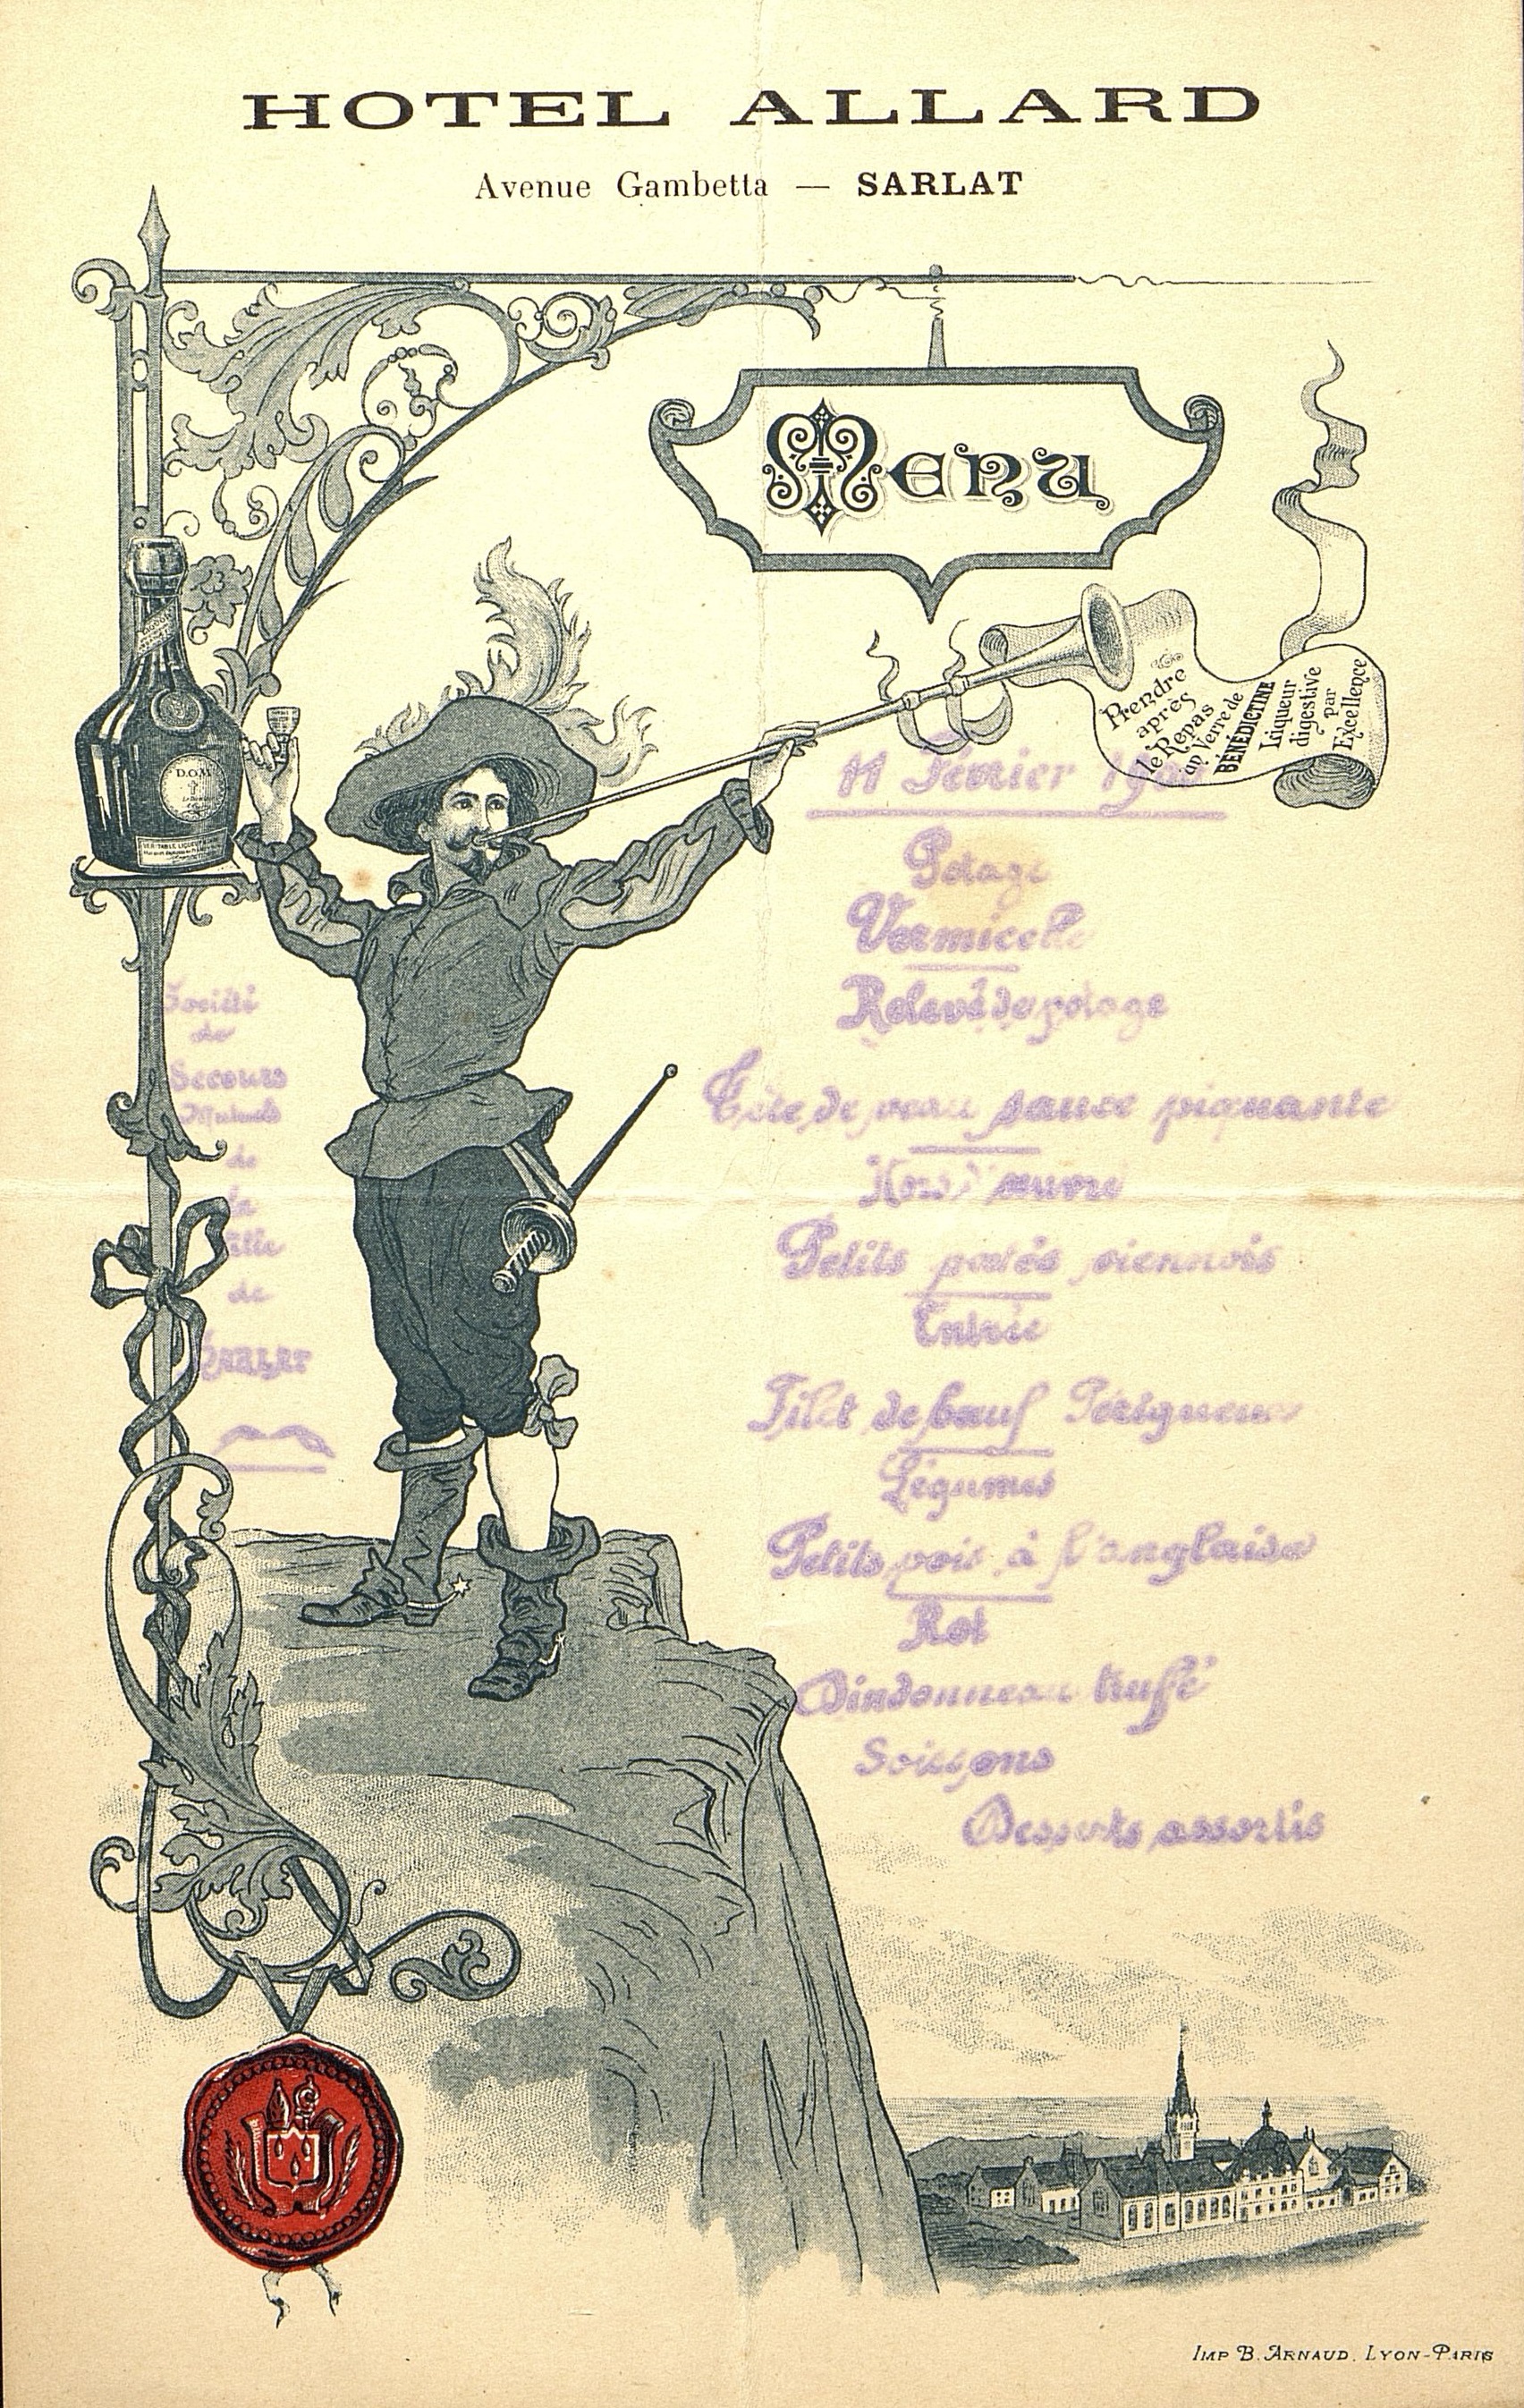 HOTEL ALLARD
Avenue Gambetta — SARLAT
Menu
Prendre
après
le Repas
un Verre de
BÉNÉDICTINE
Liqueur
digestive
par
Excellence
D.O.M
VERITABLE LIQUEUR
11 Février
Potage
Vermicelle
Relevé de potage
Tête de veau sauce piquante
Hors d'œuvre
Petits patés viennois
Entrée
Filet de bœuf Périgueux
Légumes
Petits pois à l'anglaise
Rot
Dindonneau truffé
Soissons
Desserts assortis
Société
de
Secours
Mutuels
de
la
Ville
de
SARLAT
IMP B. ARNAUD. LYON-PARIS